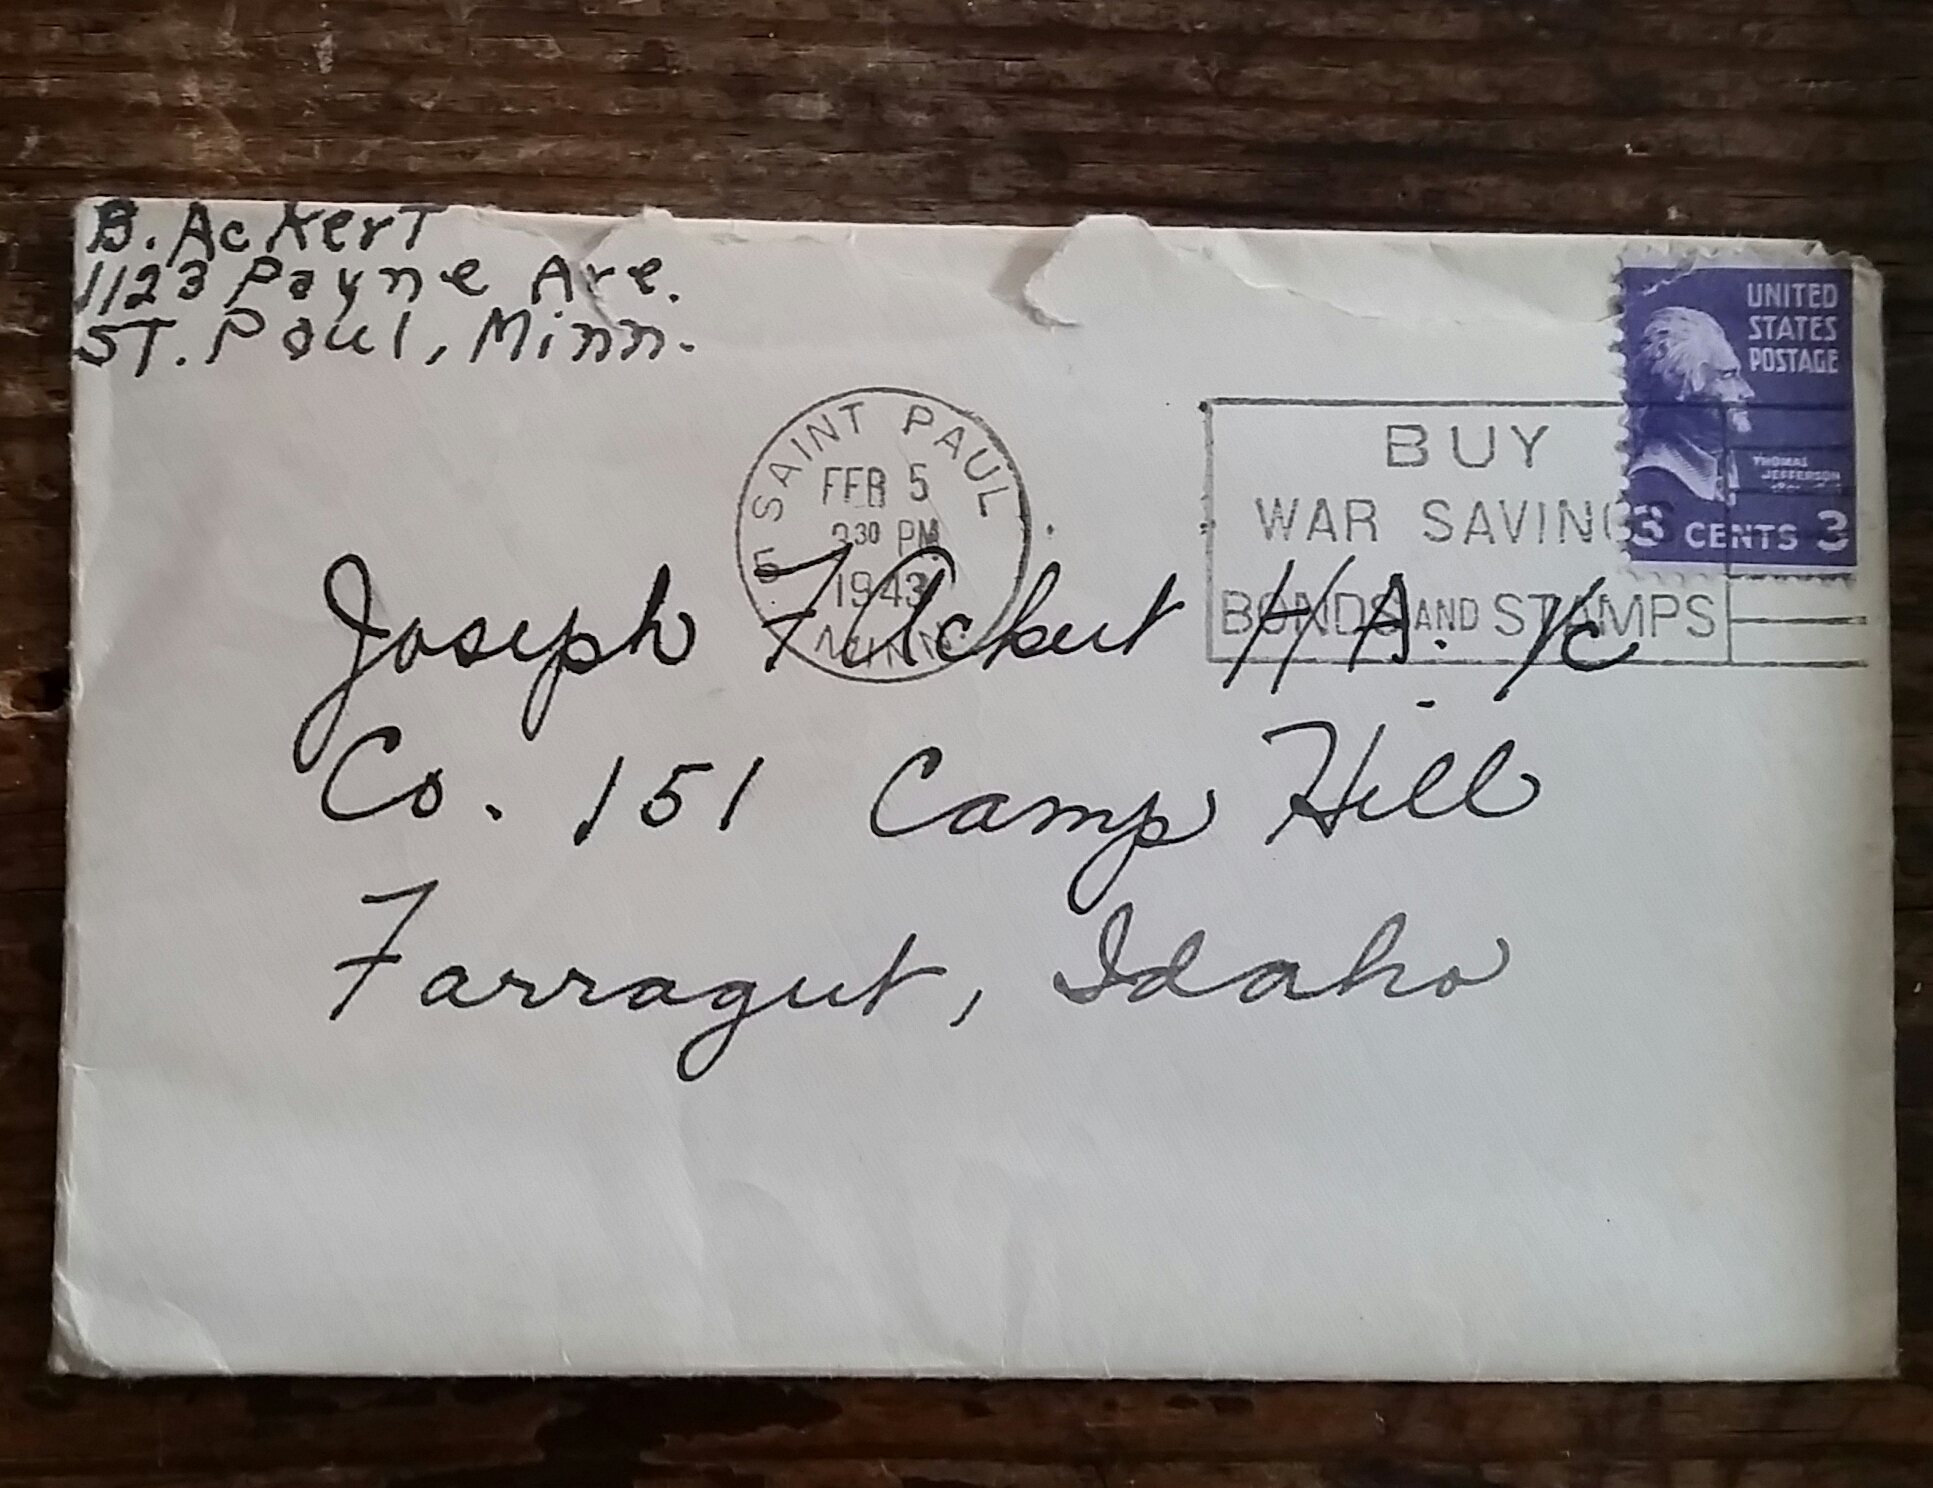 B. Ackert
1123 Payne Ave.
ST. Paul, Minn.
UNITED
STATES
POSTAGE
THOMAS
JEFFERSON
3 CENTS 3
SAINT PAUL
FEB 5
30 PM
1943
MINN.
BUY
WAR SAVINGS
BONDS AND STAMPS
Joseph F Ackert H.A. 1/c
Co. 151 Camp Hill
Farragut, Idaho